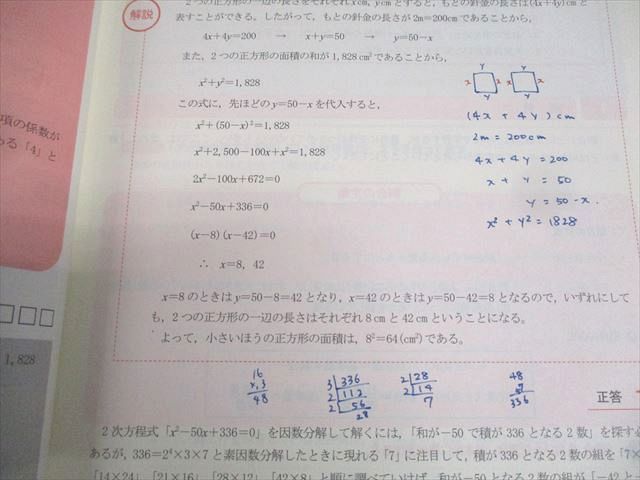 解説
2つの正方形の一辺の長さをそれぞれx cm, y cmとすると, もとの針金の長さは(4x+4y)cmと
表すことができる。したがって, もとの針金の長さが2m=200cmであることから,
4x+4y=200 → x+y=50 → y=50−x
また, 2つの正方形の面積の和が1,828cm²であることから,
x²+y²=1,828
この式に, 先ほどのy=50−xを代入すると,
x²+(50−x)²=1,828
x²+2,500−100x+x²=1,828
2x²−100x+672=0
x²−50x+336=0
(x−8)(x−42)=0
∴ x=8, 42
x=8のときはy=50−8=42となり, x=42のときはy=50−42=8となるので, いずれにして
も, 2つの正方形の一辺の長さはそれぞれ8cmと42cmということになる。
よって, 小さいほうの正方形の面積は, 8²=64(cm²)である。
y y
x x x
y y
(4x + 4y) cm
2m = 200cm
4x + 4y = 200
x + y = 50
y = 50 - x.
x² + y² = 1828
項の係数が
る「4」と
1,828
16
x,3
48
3 336
2 112
2 56
28
2 28
2 14
7
48
7
336
正答
2次方程式「x²−50x+336=0」を因数分解して解くには,「和が−50で積が336となる2数」を探す
あるが, 336=2⁴×3×7と素因数分解したときに現れる「7」に注目して, 積が336となる2数の組を「7×
「14×24」「21×16」「28×12」「42×8」と順に調べていけば, 和が−50となる2数の組が「−42と